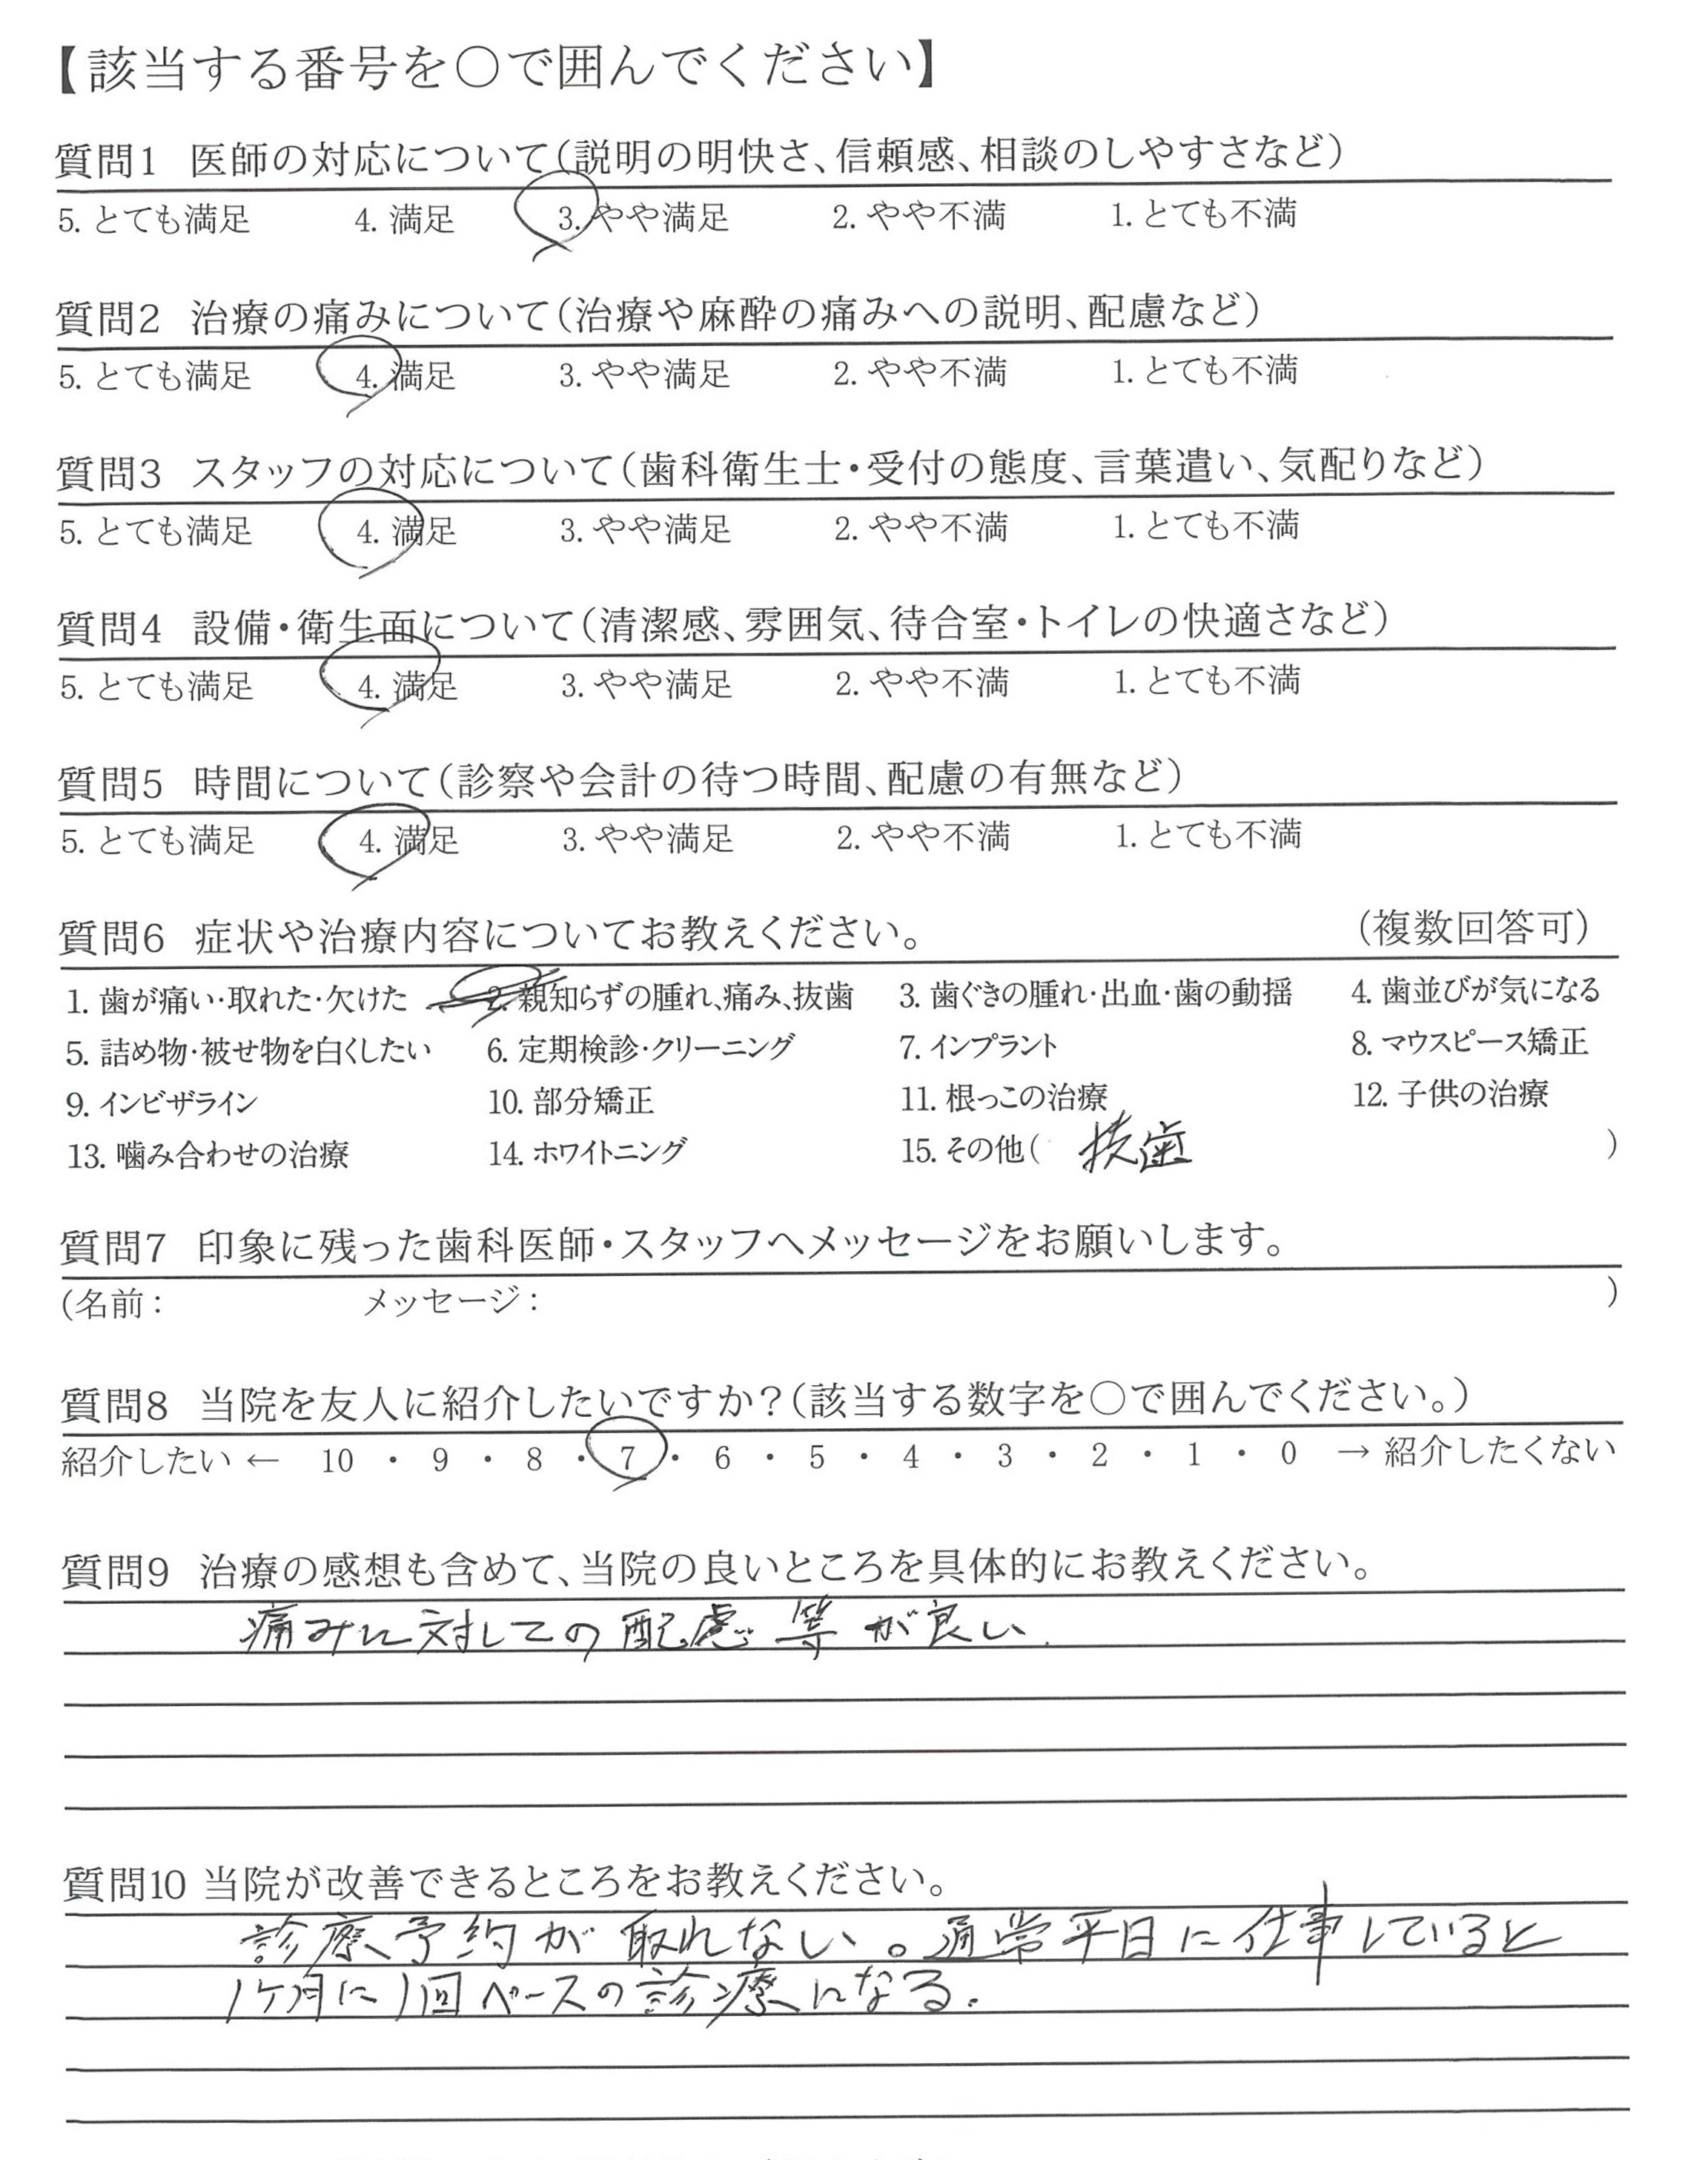 【該当する番号を○で囲んでください】
質問1 医師の対応について（説明の明快さ、信頼感、相談のしやすさなど）
5. とても満足 4. 満足 3. やや満足 2. やや不満 1. とても不満
質問2 治療の痛みについて（治療や麻酔の痛みへの説明、配慮など）
5. とても満足 4. 満足 3. やや満足 2. やや不満 1. とても不満
質問3 スタッフの対応について（歯科衛生士・受付の態度、言葉遣い、気配りなど）
5. とても満足 4. 満足 3. やや満足 2. やや不満 1. とても不満
質問4 設備・衛生面について（清潔感、雰囲気、待合室・トイレの快適さなど）
5. とても満足 4. 満足 3. やや満足 2. やや不満 1. とても不満
質問5 時間について（診察や会計の待つ時間、配慮の有無など）
5. とても満足 4. 満足 3. やや満足 2. やや不満 1. とても不満
質問6 症状や治療内容についてお教えください。 （複数回答可）
1. 歯が痛い・取れた・欠けた 2. 親知らずの腫れ、痛み、抜歯 3. 歯ぐきの腫れ・出血・歯の動揺 4. 歯並びが気になる
5. 詰め物・被せ物を白くしたい 6. 定期検診・クリーニング 7. インプラント 8. マウスピース矯正
9. インビザライン 10. 部分矯正 11. 根っこの治療 12. 子供の治療
13. 噛み合わせの治療 14. ホワイトニング 15. その他( 抜歯 )
質問7 印象に残った歯科医師・スタッフへメッセージをお願いします。
(名前： メッセージ： )
質問8 当院を友人に紹介したいですか？（該当する数字を○で囲んでください。）
紹介したい ← 10 ・ 9 ・ 8 ・ 7 ・ 6 ・ 5 ・ 4 ・ 3 ・ 2 ・ 1 ・ 0 → 紹介したくない
質問9 治療の感想も含めて、当院の良いところを具体的にお教えください。
痛みに対しての配慮等が良い.
質問10 当院が改善できるところをお教えください。
診療予約が取れない。通常平日に仕事していると
1ヶ月に1回ペースの診療になる.